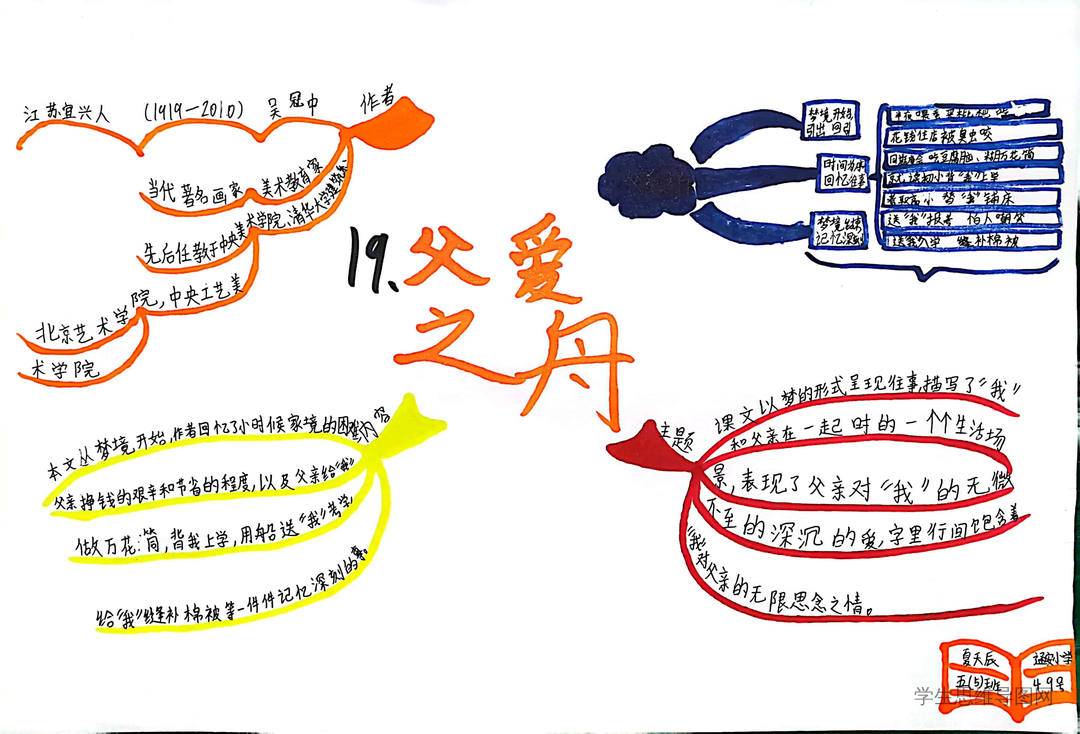 江苏宜兴人 (1919—2010) 吴冠中 作者
当代著名画家、美术教育家
先后任教于中央美术学院、清华大学建筑系
北京艺术学院，中央工艺美
术学院
19.父爱
之舟
梦境开始
引出回引
时间为序
回忆往事
梦境结束
记忆深刻
花钱住店被臭虫咬
回忆庙会 吃豆腐脑、做万花筒
就读初小 背"我"上学
离职高小 梦"我"铺床
送"我"报考 怕人嘲笑
送我入学 缝补棉被
内容
本文从梦境开始，作者回忆了小时候家境的困难
父亲挣钱的艰辛和节省的程度，以及父亲给"我"
做万花筒，背我上学，用船送"我"考学
给"我"缝补棉被等一件件记忆深刻的事。
主题
课文以梦的形式呈现往事，描写了"我"
和父亲在一起时的一个个生活场
景，表现了父亲对"我"的无微
不至的深沉的爱，字里行间饱含着
"我"对父亲的无限思念之情。
夏天辰
五(5)班
小学
49号
学生思维导图网